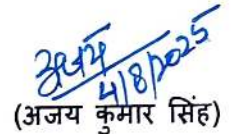 अजय
4/8/2025
(अजय कुमार सिंह)